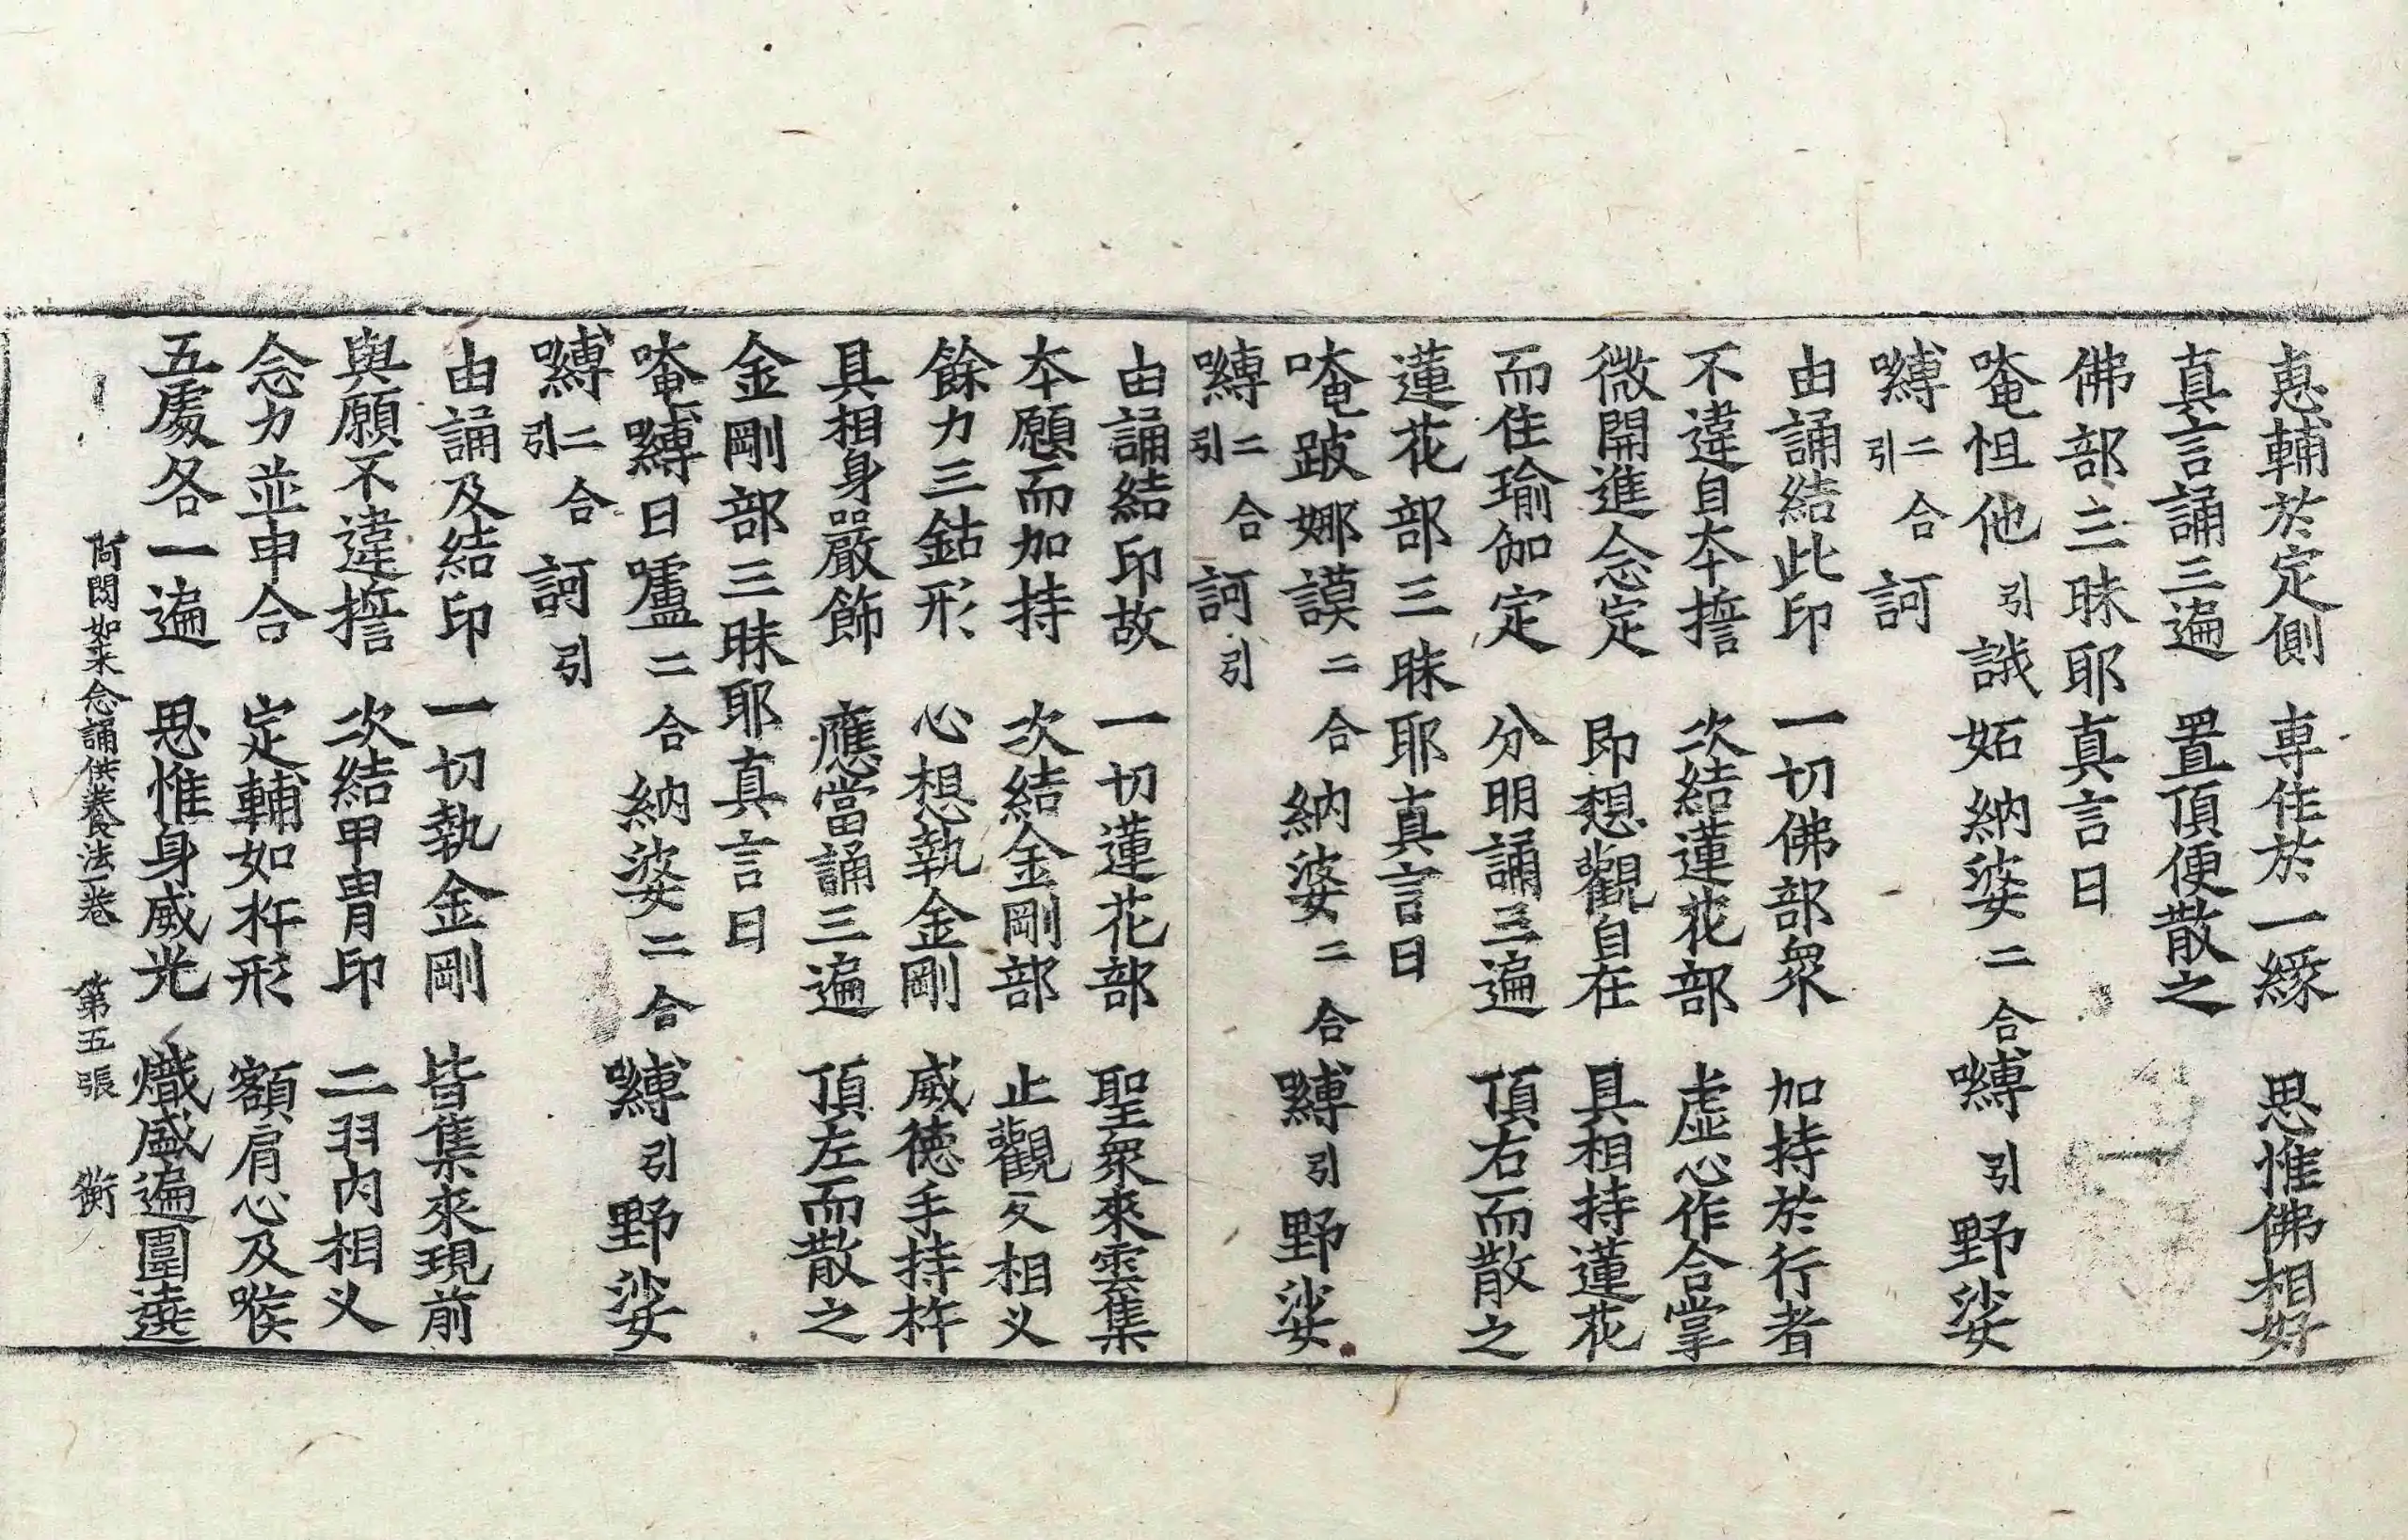 恵輔於定側 專住於一緣 思惟佛相好
真言誦三遍 置頂便散之
佛部三昧耶真言曰
唵怛他引誐妬納婆二合嚩引野娑
嚩二合引訶
由誦結此印 一切佛部眾 加持於行者
不違自夲擔 次結蓮花部 虛心作合掌
微開進念定 即想觀自在 具相持蓮花
而住瑜伽定 分明誦三遍 頂右而散之
蓮花部三昧耶真言曰
唵跛娜謨二合納婆二合嚩引野娑
嚩二合引訶引
由誦結印故 一切蓮花部 聖衆來雲集
夲願而加持 次結金剛部 止觀反相乂
餘力三鈷形 心想執金剛 威德手持杵
具相身嚴飾 應當誦三遍 頂左而散之
金剛部三昧耶真言曰
唵嚩日嚧二合納婆二合嚩引野娑
嚩二合引訶引
由誦及結印 一切執金剛 皆集來現前
與願不違擔 次結甲冑印 二羽內相乂
念力並申合 定輔如杵形 額肩心及喉
五處各一遍 思惟身威光 熾盛遍圍遶
阿閦如来念誦供養法一卷 第五張 衡